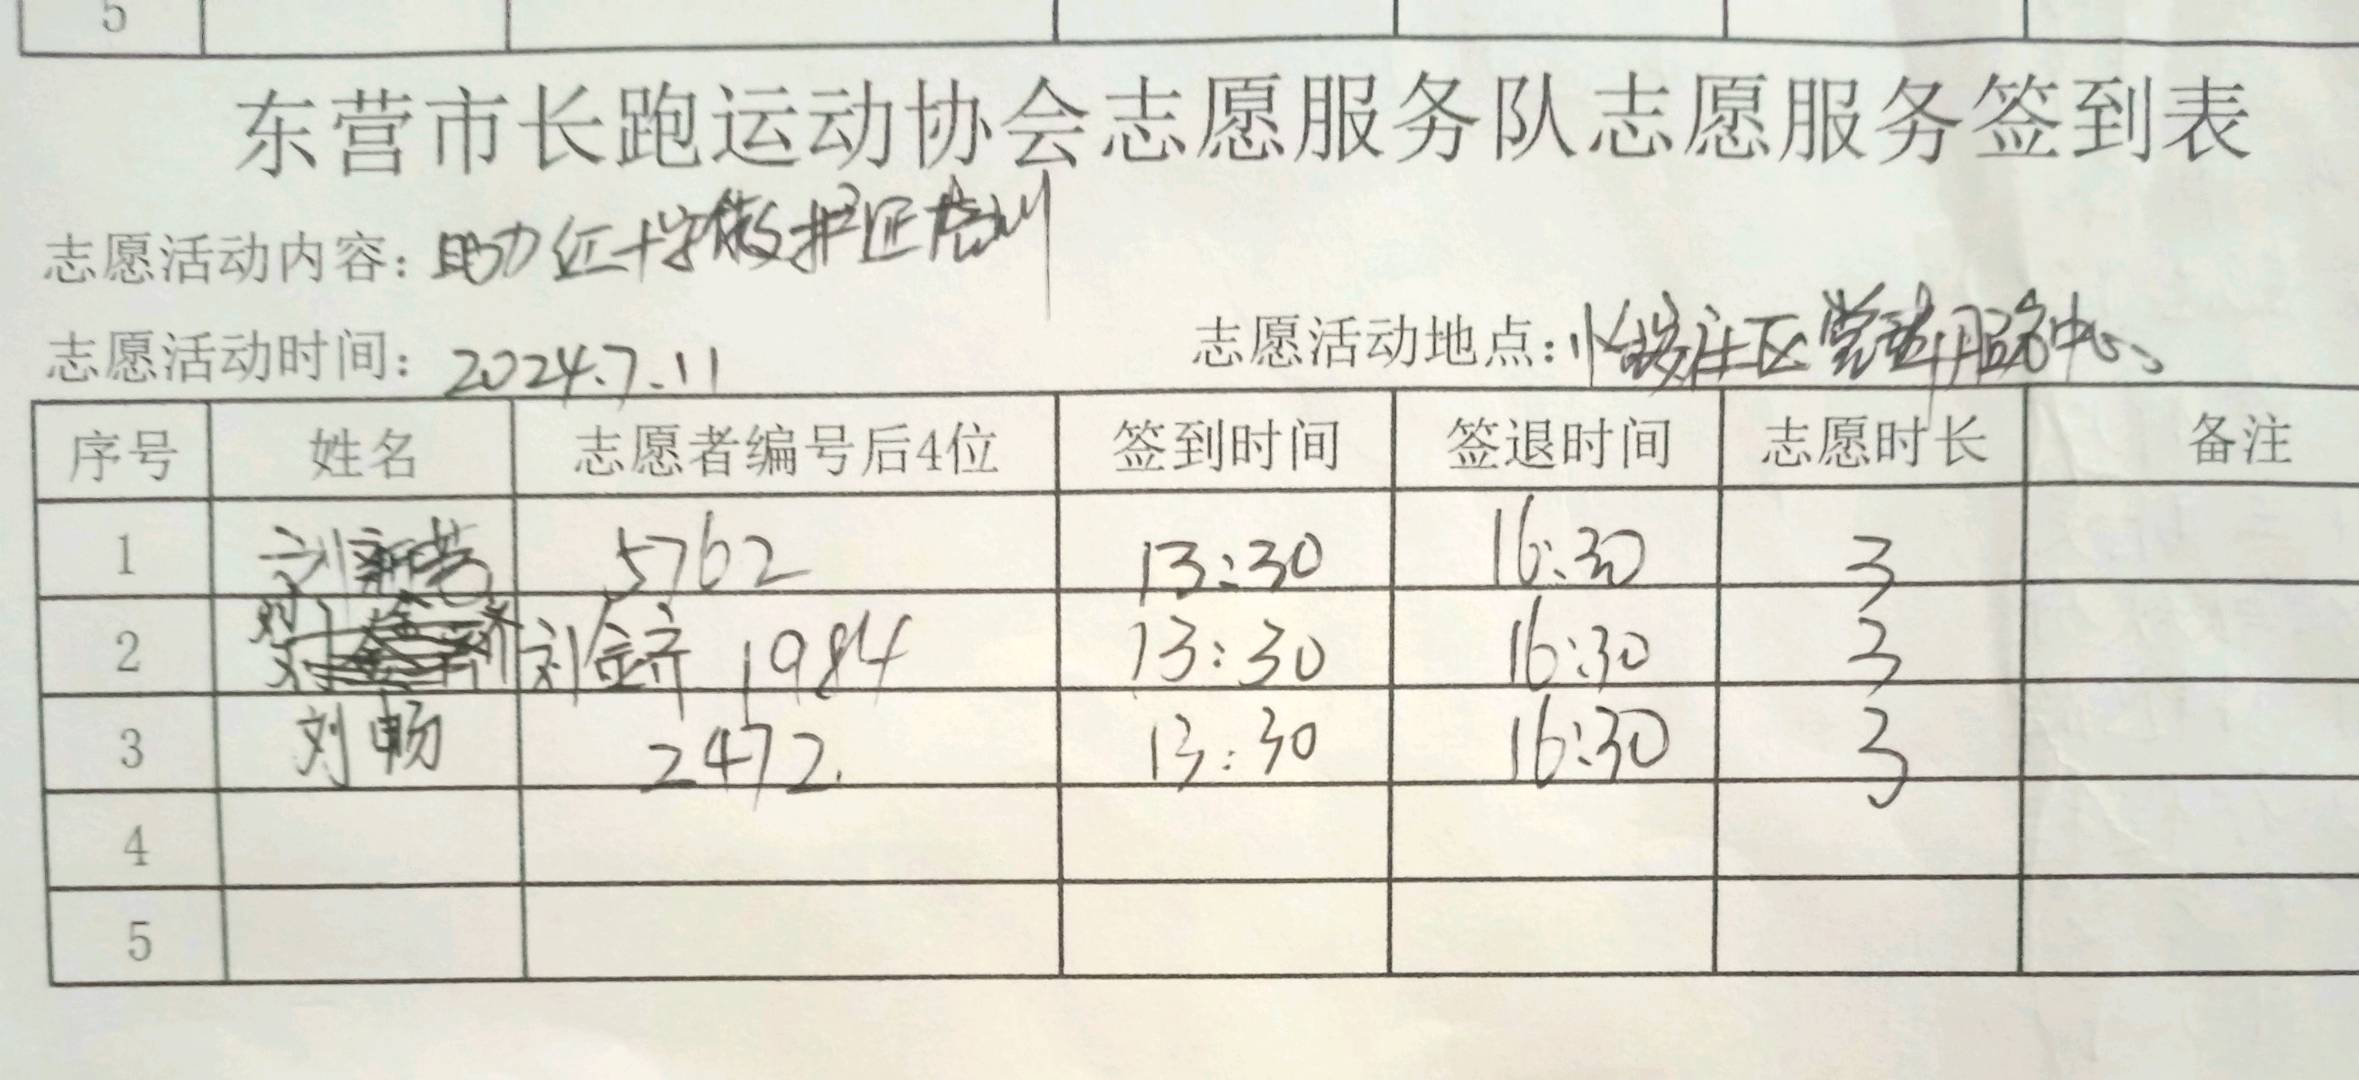 5
东营市长跑运动协会志愿服务队志愿服务签到表
志愿活动内容：助力红十字救护证培训
志愿活动时间：2024.7.11 志愿活动地点：社区党群服务中心
序号 姓名 志愿者编号后4位 签到时间 签退时间 志愿时长 备注
1 刘新芸 5762 13:30 16:30 3
2 刘金济 1984 13:30 16:30 3
3 刘畅 2472 13:30 16:30 3
4
5